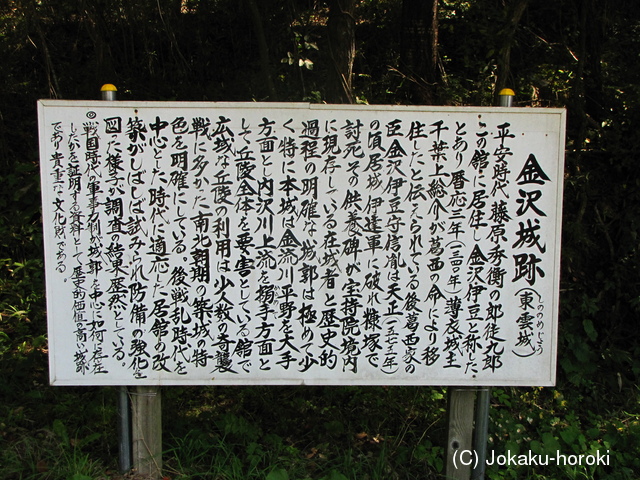 金沢城跡(東雲城)
しののめじょう
平安時代藤原秀衡の郎従九郎
この館に居住し金沢伊豆と称した
とあり暦応三年(一三四〇年)薄衣城主
千葉上総介が葛西の命により移
住したと伝えられている後葛西家の
臣金沢伊豆守信胤は天正(一五七三年)
の頃居城伊達軍に破れ糠塚で
討死その供養碑が宝持院境内
に現存している在城者と歴史的
過程の明確な城郭は極めて少
く特に本城は金流川平野を大手
方面とし内沢川上流を搦手方面と
して丘陵全体を要害としている館で
広域な丘陵の利用は少人数の奇襲
戦に多かた南北朝期の築城の特
色を明確にしている。後戦乱時代を
中心とした時代に適応した居館の改
築がしばしば試みられ防備の強化を
図た様子が調査の結果歴然としている。
◎戦国時代の軍事力側が城郭を中心に如何に存在
したかを証明する資料として歴史的価値の高い城郭
であり貴重な文化財である。
(C) Jokaku-horoki